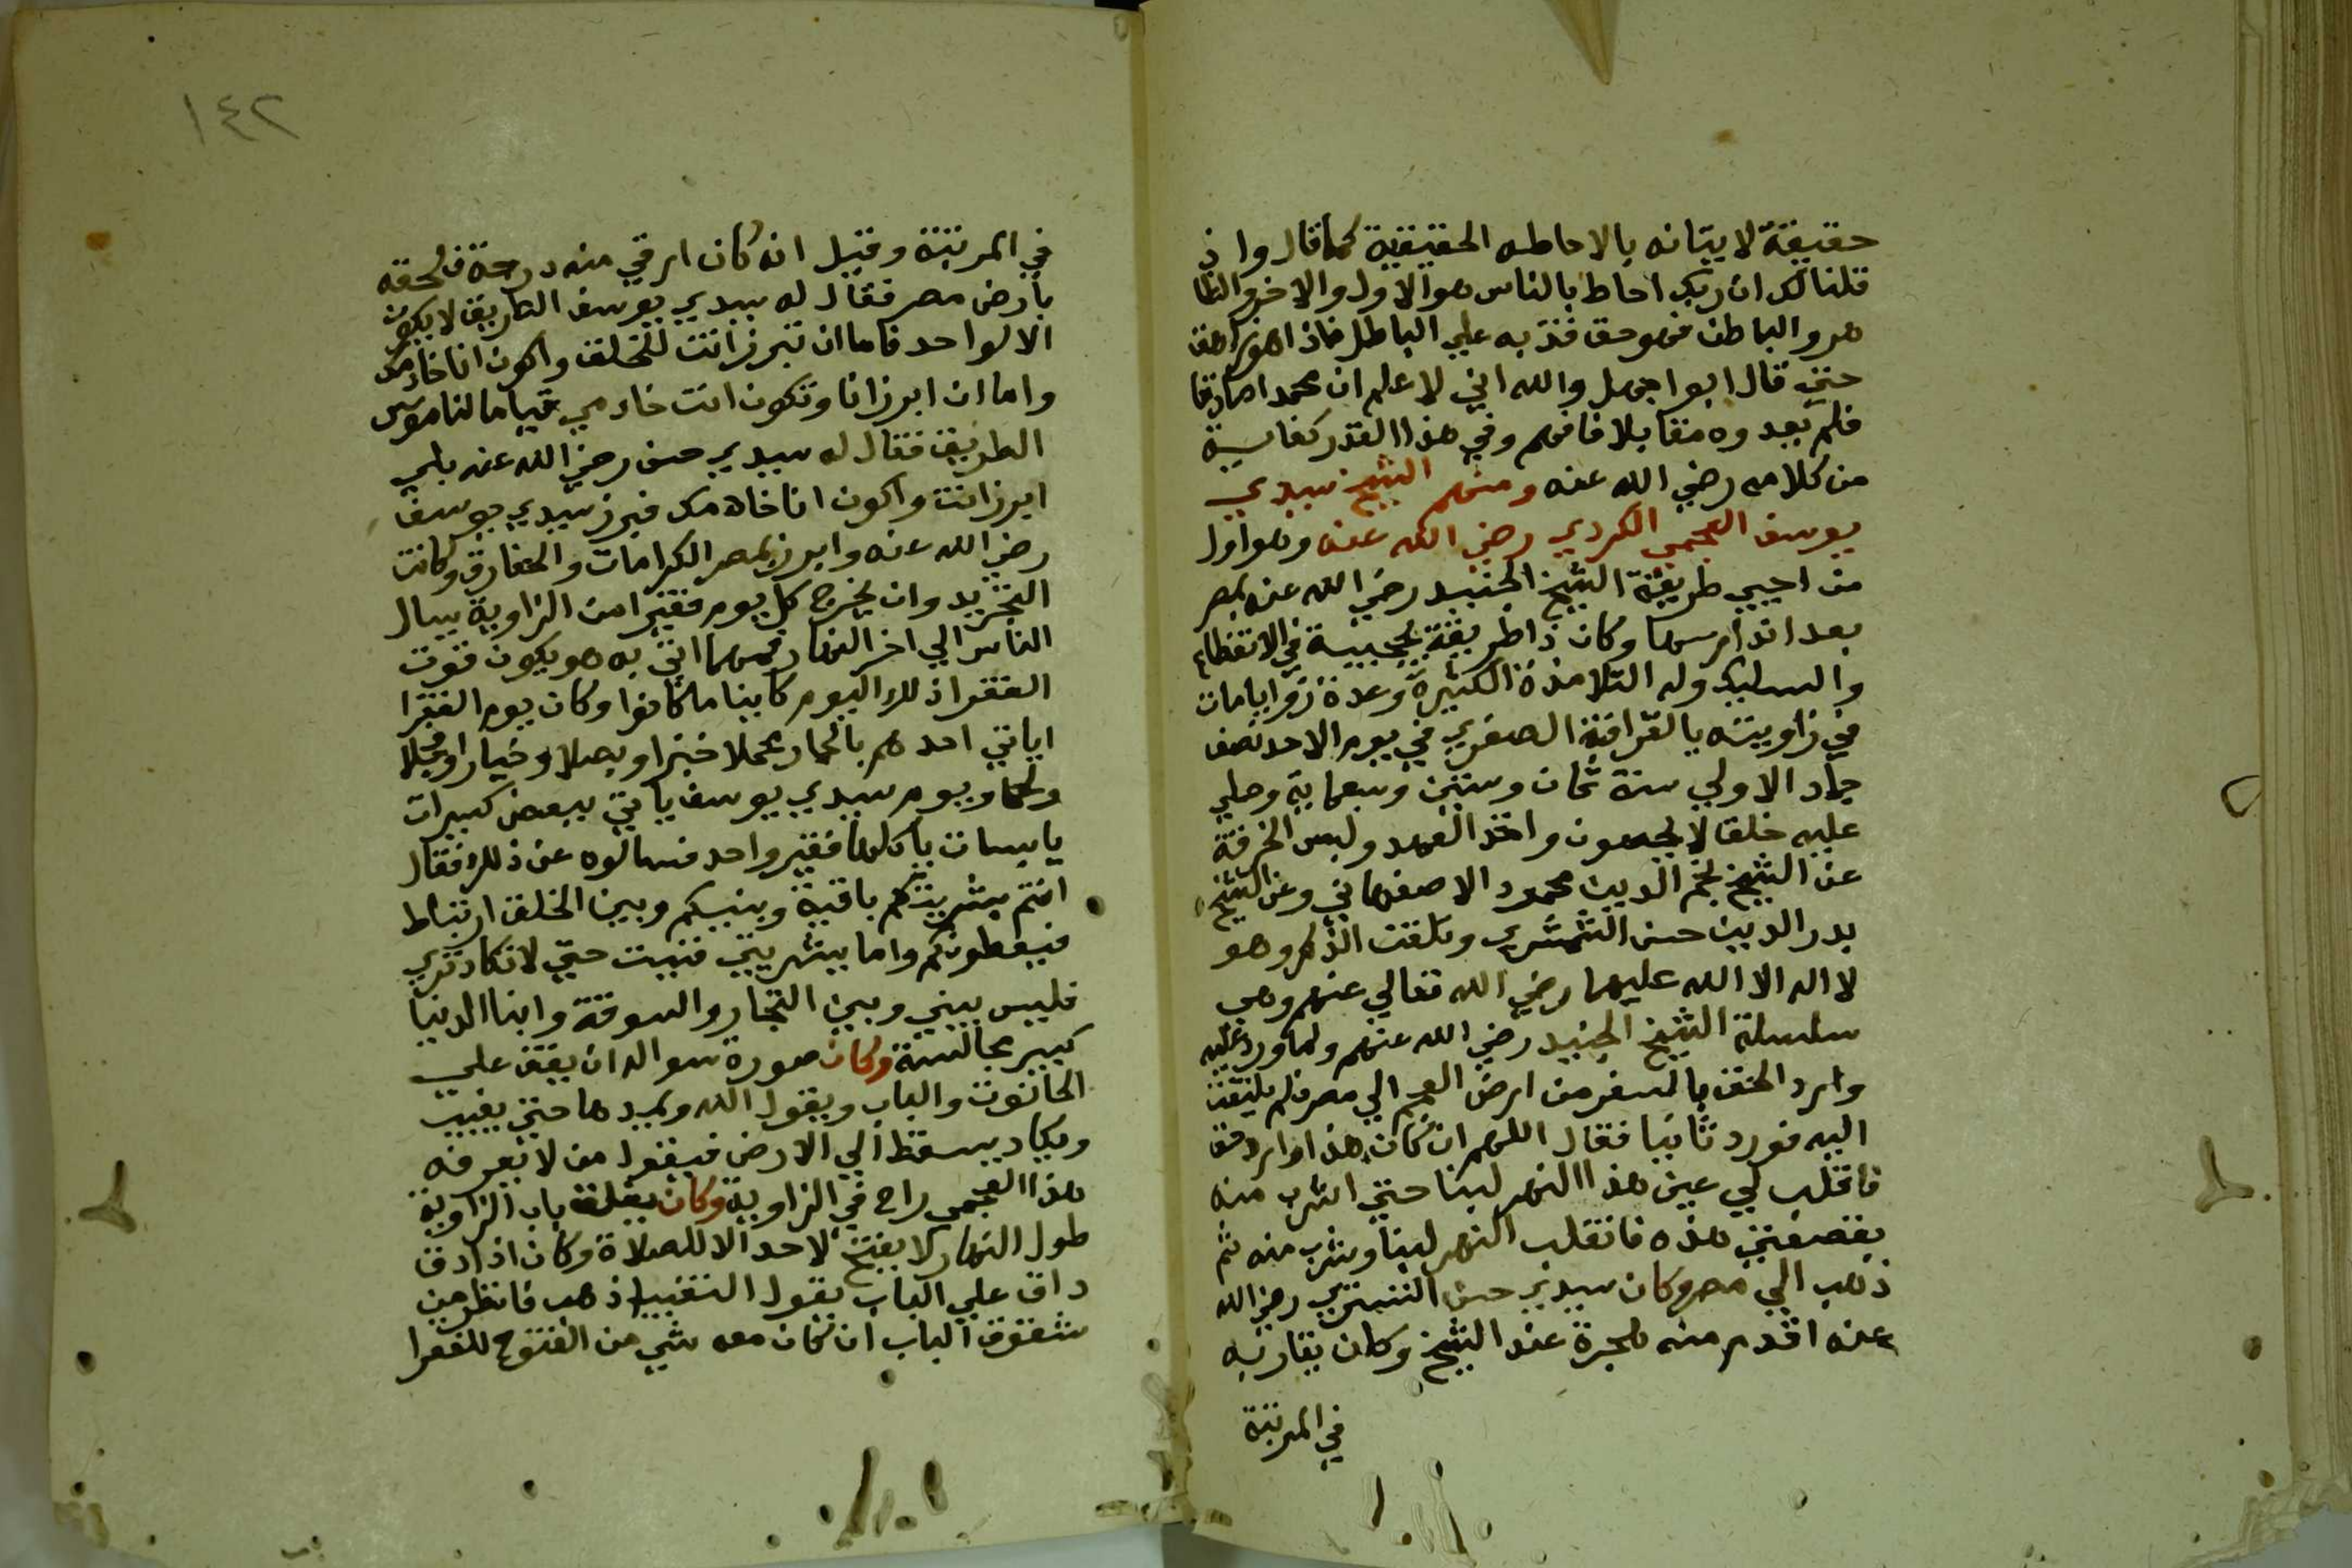 حقيقة لا يتأنه بالاحاطه الحقيقية كما قال واذ
قلنا لك ان ربك احاط بالناس هو الاول والاخر والظا
هر والباطن فهو حق قذ به علي الباطل فاذا هو زاهق
حتي قال ابوا جهل والله اني لاعلم ان محمدا صادقا
فلم تجدوه مقابلا فافهم وفي هذا القدر كفاية
من كلامه رضي الله عنه ومنهم الشيخ سيدي
يوسف العجمي الكردي رضي الله عنه وهو اول
من احيي طريقة الشيخ الجنيد رضي الله عنه بمصر
بعد اندارسها وكان ذا طريقة عجيبة في الانقطاع
والتسليك وله التلامذة الكثيرة وعدة زوايا مات
في زاويته بالقرافة الصغري في يوم الاحد نصف
جماد الاولي سنة ثمان وستين وسبعماية وصلي
عليه خلقا لا يحصون واخذ العهد ولبس الخرقة
عن الشيخ نجم الدين محمود الاصفهاني وعن الشيخ
بدر الدين حسن الشمشيري وتلقن الذكر وهو
لا اله الا الله عليهما رضي الله تعالي عنهم وهي
سلسلة الشيخ الجنيد رضي الله عنهم ولما ورد عليه
وارد الحق بالسفر من ارض العجم الي مصر فلم يلتفت
اليه فورد ثانيا فقال اللهم ان كان هذا وارد حق
فاقلب لي عين هذا النهر لبنا حتي اشرب منه
بقصعتي هذه فانقلب النهر لبنا وشرب منه ثم
ذهب الي مصر وكان سيدي حسن التستري رضي الله
عنه اقدم منه هجرة عند الشيخ وكان يقاربه
في المرتبة
١٤٢
في المرتبة وقيل انه كان ارقي منه درجة فلحقه
بارض مصر فقال له سيدي يوسف الطريق لا يكون
الا لواحد فاما ان تبرز انت للخلق واكون انا خادمك
واما ان ابرز انا وتكون انت خادمي قياما لناموس
الطريق فقال له سيدي حسن رضي الله عنه بلي
ابرز انت واكون انا خادمك فبرز سيدي يوسف
رضي الله عنه وابرز بمصر الكرامات والخوارق وكانت
التجريد وان يخرج كل يوم فقيرا من الزاوية يسال
الناس الي اخر النهار فمهما اتي به هو يكون قوت
الفقرا ذلك اليوم كاينا ما كانوا وكان يوم الفقرا
اياتي احدهم بالحمار محملا خبزا وبصلا وخيارا وفجلا
ولحما ويوم سيدي يوسف ياتي ببعض كسيرات
يابسات ياكلها فقير واحد فسالوه عن ذلك فقال
انتم بشريتكم باقية وبينكم وبين الخلق ارتباط
فيعطونكم واما بشريتي فنيت حتي لا تكاد تري
فليس بيني وبين التجار والسوقة وابنا الدنيا
كبير مجالسة وكان صورة سواله ان يقف علي
الحانوت والباب ويقول الله ويمدها حتي يغيب
ويكاد يسقط الي الارض فيقول من لا يعرفه
هذا العجمي راح في الزاوية وكان يغلق باب الزاوية
طول النهار لا يفتح لاحد الا للصلاة وكان اذا دق
داق علي الباب يقول النقيب اذهب فانظر من
شقوق الباب ان كان معه شي من الفتوح للفقرا